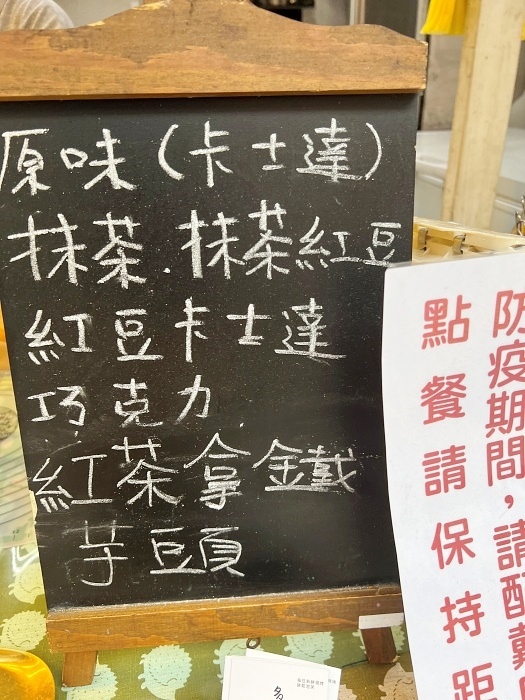 原味(卡士達)
抹茶.抹茶紅豆
紅豆卡士達
巧克力
紅茶拿鐵
芋頭
防疫期間,請配戴
點餐請保持距